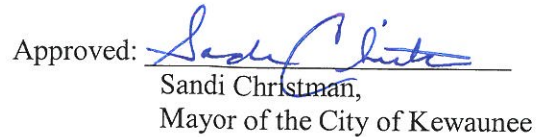 Approved: Sandi Christman
Sandi Christman,
Mayor of the City of Kewaunee